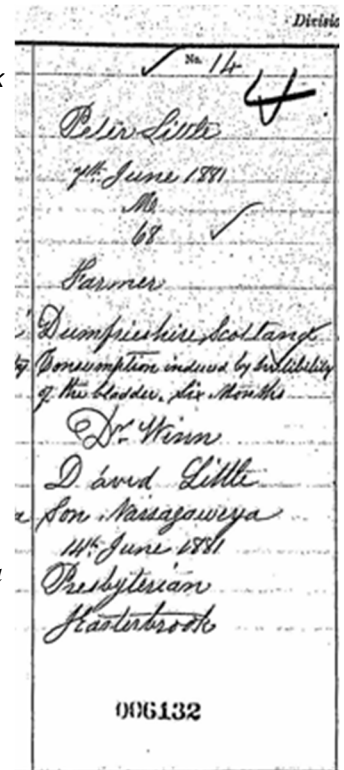 Divisio
No. 14
4
Peter Little
7th June 1881
M
68
Farmer
Dumfrieshire Scotland
Consumption induced by Irritibility
of the bladder. Six Months
Dr Winn
David Little
Son Nassagaweya
14th June 1881
Presbyterian
Hasterbrook
006132